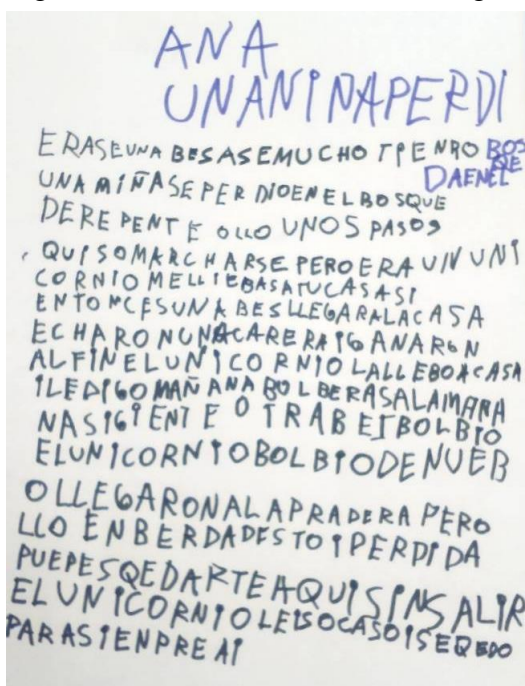 ANA
UNANIÑAPERDI
DAENEL BOSQE
ERASEUNA BESASEMUCHO TIENRO
UNA NIÑASE PER DIOENELBOSQUE
DEREPENTE OLLO UNOS PASOS
QUISOMARCHARSE PEROERA UN UNI
CORNIO MELLIEBASATUCASASI
ENTONCESUNA BES LLEGARALACASA
ECHARONUNACARERAIGANARON
ALFINELUNICORNIOLALLEBOACASA
ILEDIGOMAÑANABOLBERASALAMAÑA
NASIGIENTE OTRABEIBOLBIO
ELUNICORNIOBOLBIODENUEB
OLLEGARONALAPRADERA PERO
LLO ENBERDADESTOIPERDIDA
PUEDESQEDARTEAQUISINSALIR
ELUNICORNIOLEISOCASOISEQEDO
PARASIENPRE AI